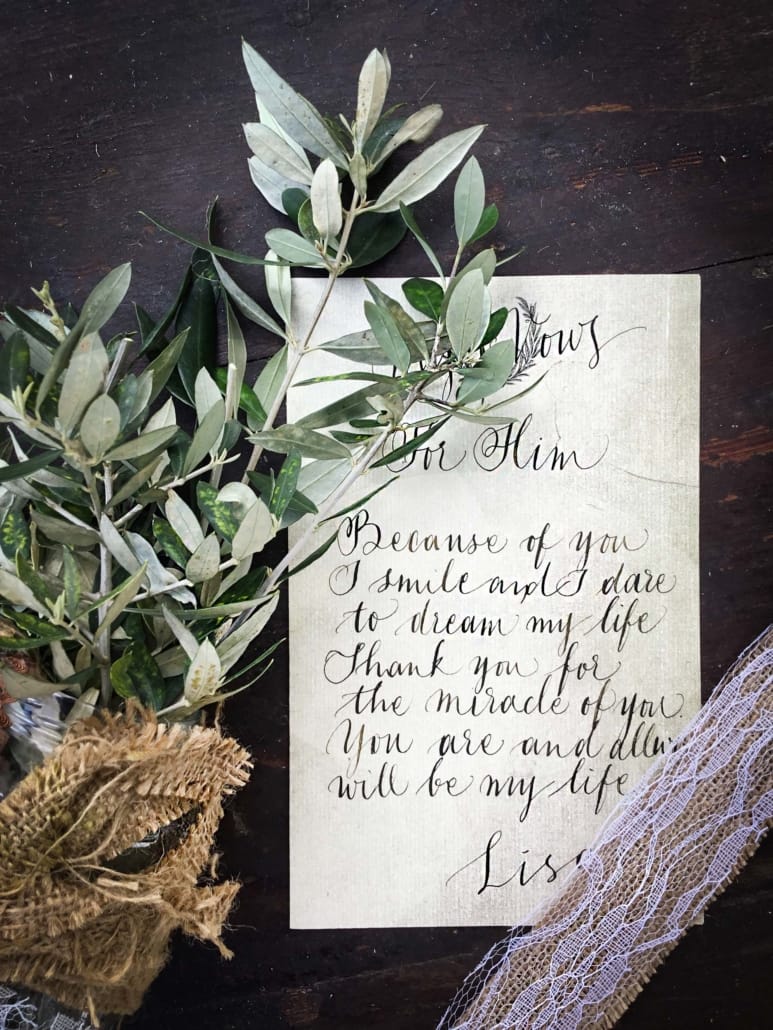 Vows
For Him
Because of you
I smile and I dare
to dream my life
Thank you for
the miracle of you.
You are and
will be my life